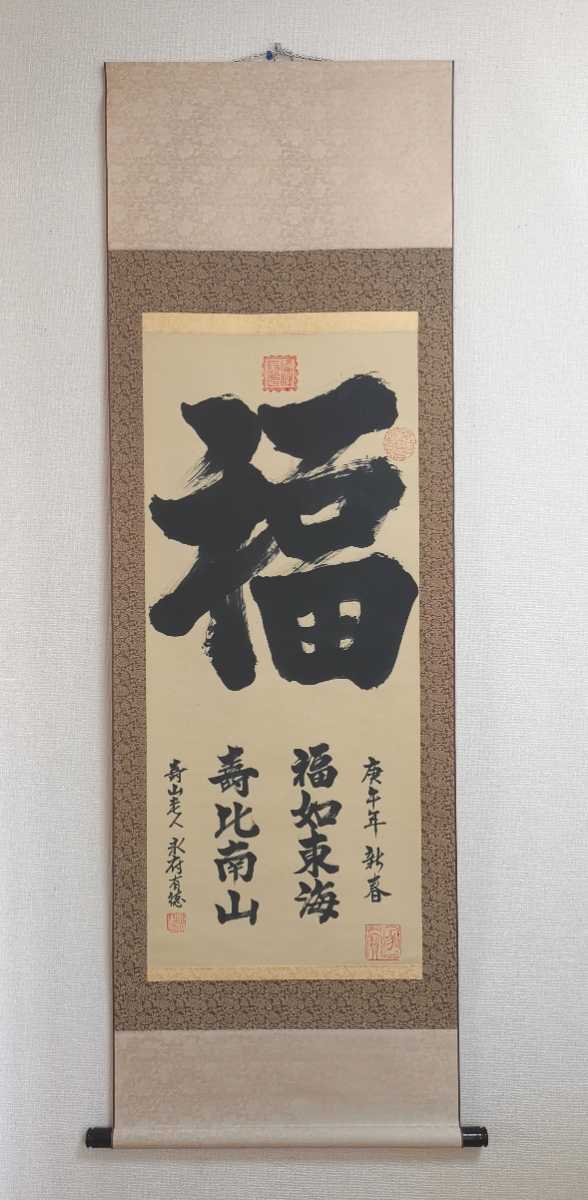 福
庚午年 新春
福如東海
壽比南山
壽山老人